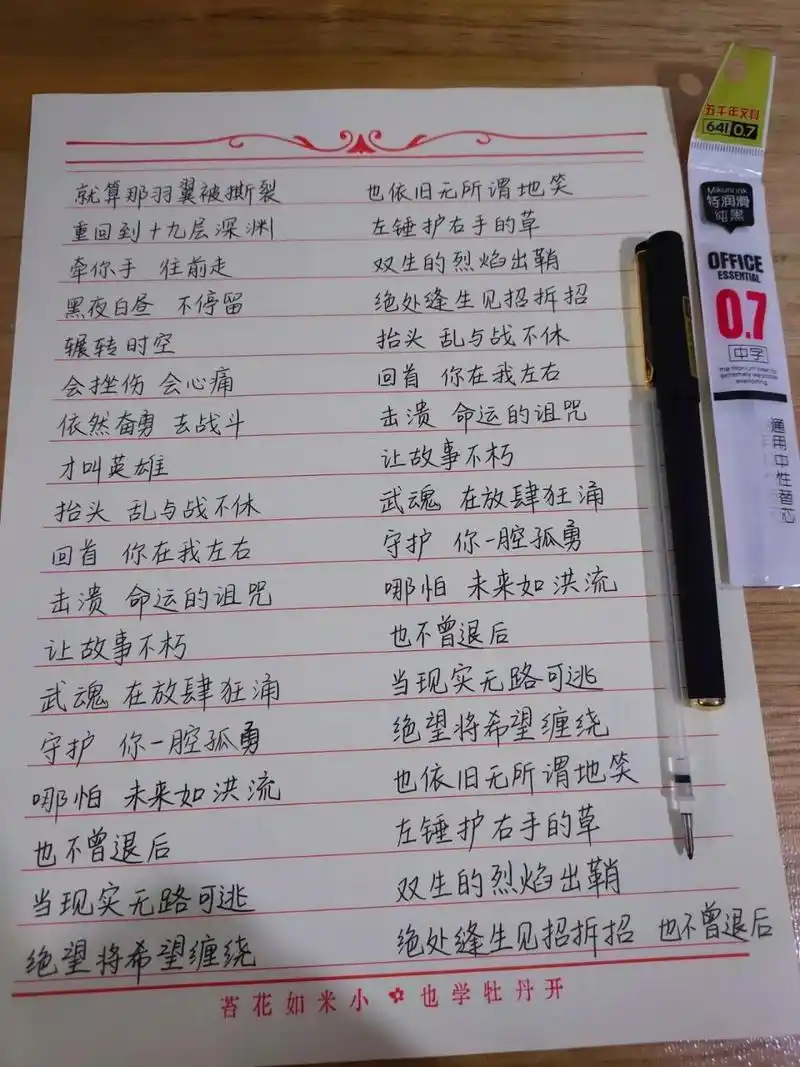 就算那羽翼被撕裂
重回到十九层深渊
牵你手 往前走
黑夜白昼 不停留
辗转时空
会挫伤 会心痛
依然奋勇 去战斗
才叫英雄
抬头 乱与战不休
回首 你在我左右
击溃 命运的诅咒
让故事不朽
武魂 在放肆狂涌
守护 你一腔孤勇
哪怕 未来如洪流
也不曾退后
当现实无路可逃
绝望将希望缠绕
也依旧无所谓地笑
左锤护右手的草
双生的烈焰出鞘
绝处缝生见招拆招
抬头 乱与战不休
回首 你在我左右
击溃 命运的诅咒
让故事不朽
武魂 在放肆狂涌
守护 你一腔孤勇
哪怕 未来如洪流
也不曾退后
当现实无路可逃
绝望将希望缠绕
也依旧无所谓地笑
左锤护右手的草
双生的烈焰出鞘
绝处缝生见招拆招 也不曾退后
苔花如米小 也学牡丹开
五千年文具
641 0.7
特润滑
纯黑
OFFICE
ESSENTIAL
0.7
中字
通用中性替芯